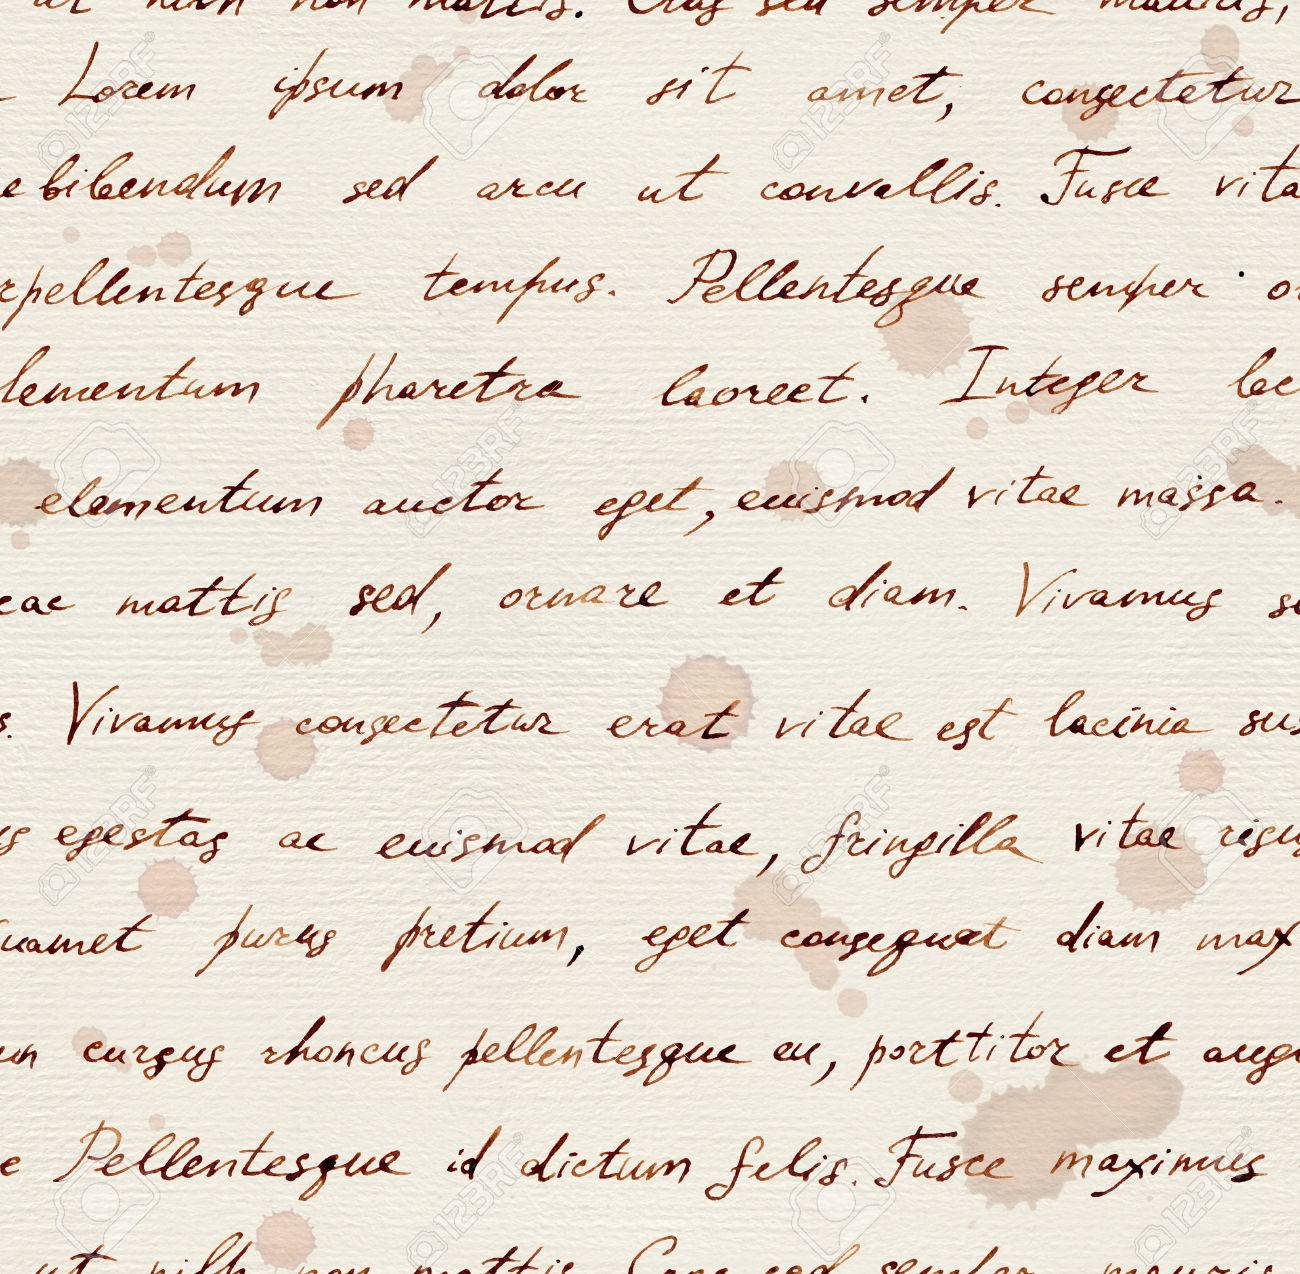 non mattis. Cras sed semper mauris,
Lorem ipsum dolor sit amet, consectetur
e bibendum sed arcu ut convallis. Fusce vita
rpellentesque tempus. Pellentesque semper or
lementum pharetra laoreet. Integer lac
elementum auctor eget, euismod vitae massa.
cac mattis sed, ornare et diam. Vivamus se
s. Vivamus consectetur erat vitae est lacinia sus
us egestas ac euismod vitae, fringilla vitae risus
uamet purus pretium, eget consequat diam max
un cursus rhoncus pellentesque eu, porttitor et augu
e Pellentesque id dictum felis. Fusce maximus
ut nibh non mattis. Cras sed semper mauris